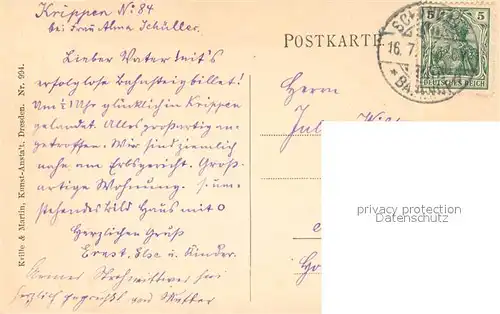 Krippen No: 84
bei Frau Alma Schuller.
Lieber Vater
erfolglose Bahnsteigbillet!
Um ½1 Uhr glücklich in Krippen
gelandet. Alles großartig an-
getroffen. Wir sind ziemlich
nahe am Erbgericht. Groß-
artige Wohnung. S. um-
stehendes Bild Haus mit O
Herzlichen Gruß
Ernst, Else u. Kinder.
herzlich gegrüßt von Mutter
Krille & Martin, Kunst-Anstalt, Dresden. Nr. 994.
POSTKARTE
5 5
DEUTSCHES REICH
16. 7.
Herrn
privacy protection
www.oldthing.com